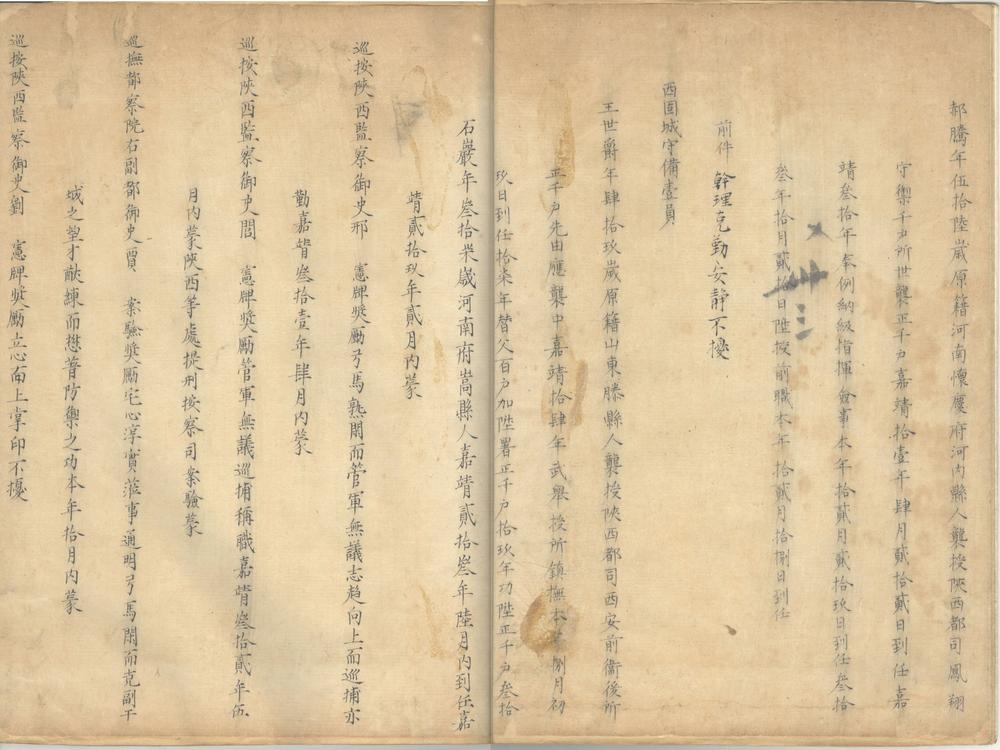 郝騰年伍拾陸歲原籍河南懷慶府河內縣人襲授陝西都司鳳翔
守禦千戶所世襲正千戶嘉靖拾壹年肆月貳拾貳日到任嘉
靖叁拾年奉例納級指揮僉事本年拾貳月貳拾玖日到任叁拾
叁年拾月貳拾日陞授前職本年拾貳月拾捌日到任
前件幹理克勤安靜不擾
西固城守備壹員
王世爵年肆拾玖歲原籍山東滕縣人襲授陝西都司西安前衞後所
正千戶先由應襲中嘉靖拾肆年武舉授所鎮撫本年捌月初
玖日到任拾柒年替父百戶加陞署正千戶拾玖年功陞正千戶叁拾
石巖年叁拾柒歲河南府嵩縣人嘉靖貳拾叁年陸月內到任嘉
靖貳拾玖年貳月內蒙
巡按陝西監察御史邢 憲牌獎勵弓馬熟閑而管軍無議志趨向上而巡捕亦
勤嘉靖叁拾壹年肆月內蒙
巡按陝西監察御史閻 憲牌獎勵管軍無議巡捕稱職嘉靖叁拾貳年伍
月內蒙陝西等處提刑按察司案驗蒙
巡撫都察院右副都御史賈 案驗獎勵宅心淳實蒞事通明弓馬閑而克副干
城之望才猷練而懋著防禦之功本年拾月內蒙
巡按陝西監察御史劉 憲牌獎勵立心向上掌印不擾